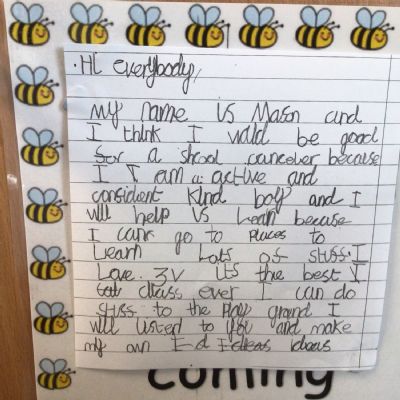 Hi everybody,
My name is Mason and
I think I wold be good
for a shcool canceler because
I I am a active and
considient kind boly and I
will help us learn because
I canr go to places to
Learn Lots of stuff I
Love 3V its the best I
class ever I can do
stuff to the play ground I
will listed to you and make
my own I d Ideas ideas
coming